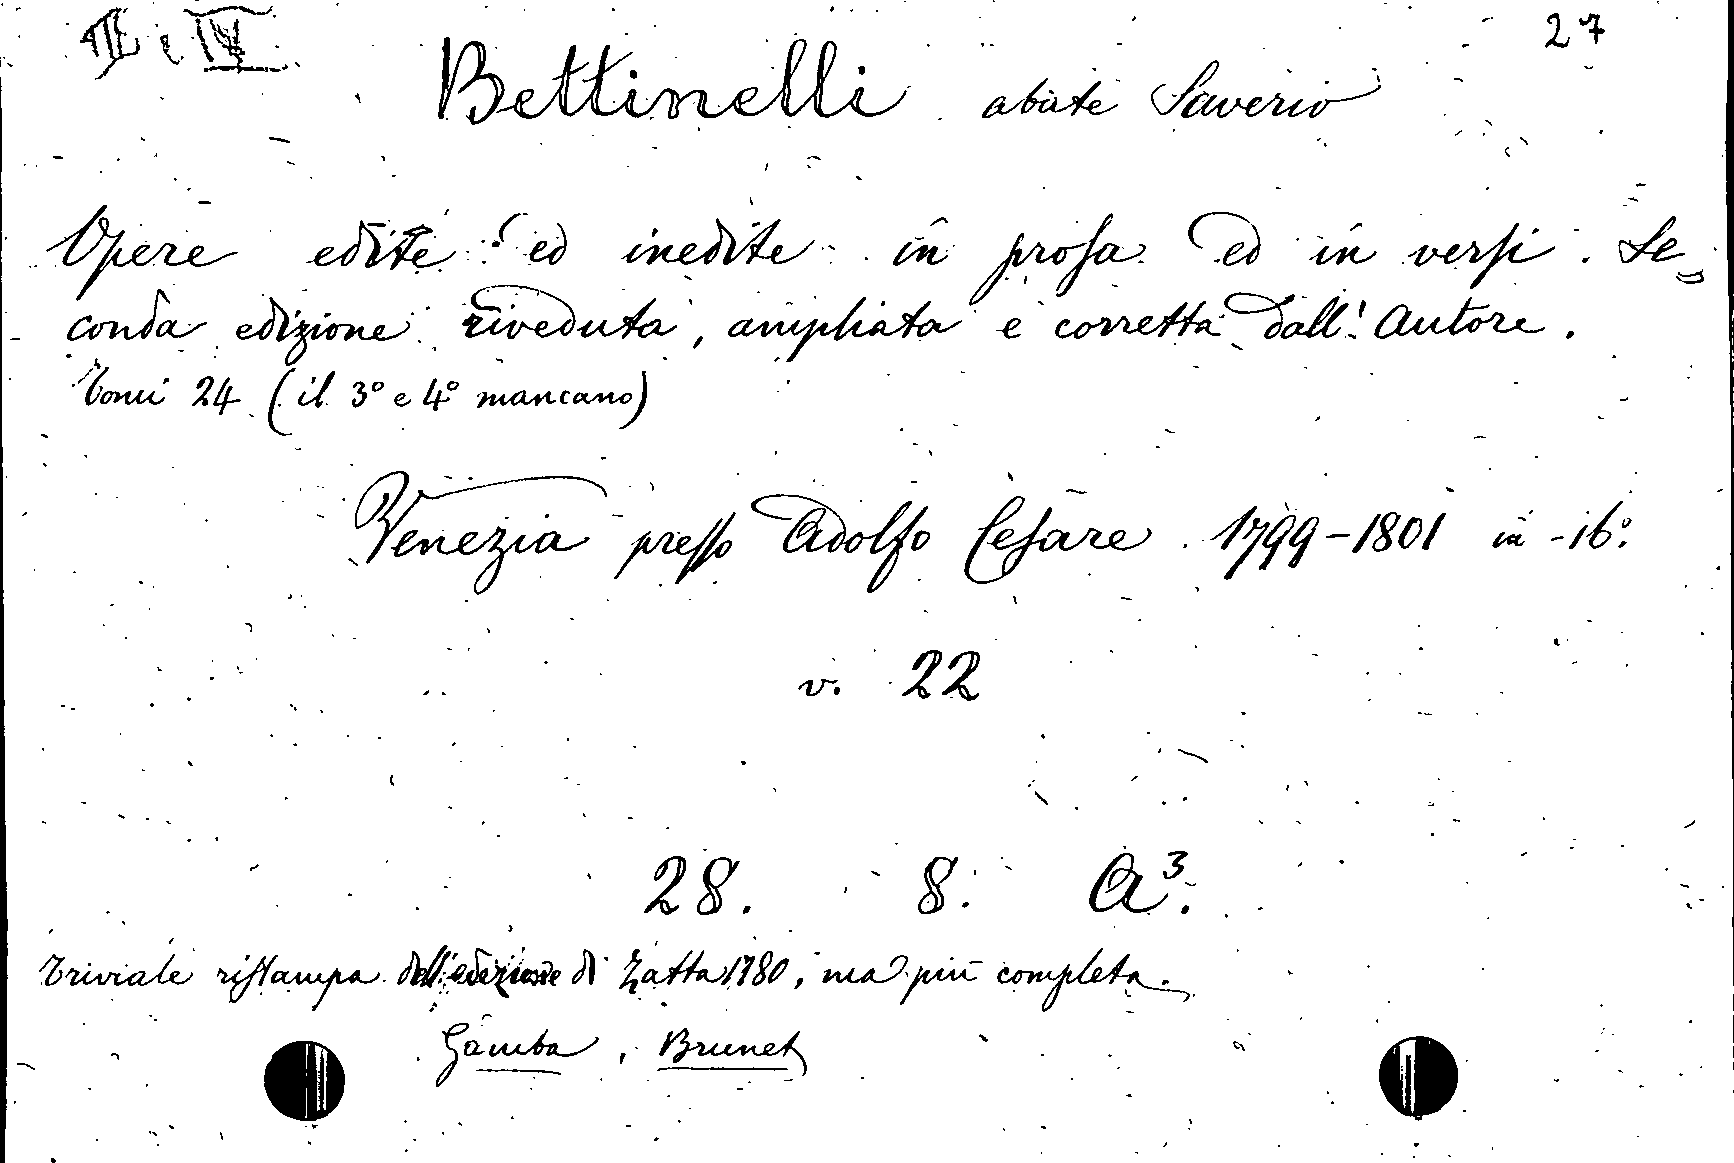 27
Bettinelli abate Saverio
Opere edite ed inedite in prosa ed in versi. Se„
conda edizione riveduta, ampliata e corretta dall' Autore.
Tomi 24 (il 3° e 4° mancano)
Venezia presso Adolfo Cesare. 1799-1801 in-16°.
v. 22
28. 8. A³.
Triviale ristampa dell'edizione di Zatta 1780, ma più completa.
Gamba, Brunet